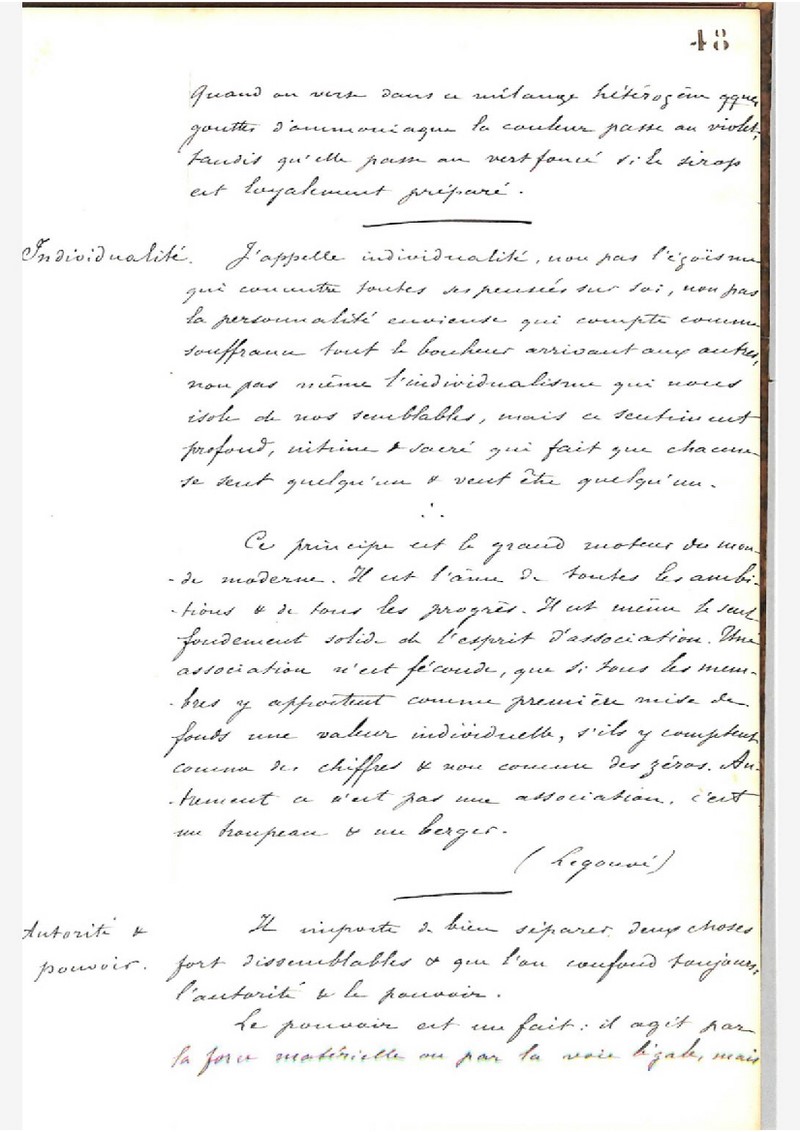 48
Quand on verse dans ce mélange hétérogène qques
gouttes d'ammoniaque la couleur passe au violet,
tandis qu'elle passe au vert foncé si le sirop
est loyalement préparé.
Individualité. J'appelle individualité, non pas l'égoïsme
qui concentre toutes ses pensées sur soi, non pas
la personnalité envieuse qui compte comme
souffrance tout le bonheur arrivant aux autres,
non pas même l'individualisme qui nous
isole de nos semblables, mais ce sentiment
profond, intime & sacré qui fait que chacun
se sent quelqu'un & veut être quelqu'un.
Ce principe est le grand moteur du mon-
-de moderne. Il est l'âme de toutes les ambi-
-tions & de tous les progrès. Il est même le seul
fondement solide de l'esprit d'association. Une
association n'est féconde, que si tous les mem-
-bres y apportent comme première mise de
fonds une valeur individuelle, s'ils y comptent
comme des chiffres & non comme des zéros. Au-
-trement ce n'est pas une association, c'est
un troupeau & un berger.
(Legouvé)
Autorité & Il importe de bien séparer deux choses
pouvoir. fort dissemblables & que l'on confond toujours,
l'autorité & le pouvoir.
Le pouvoir est un fait : il agit par
la force matérielle ou par la voie légale, mais